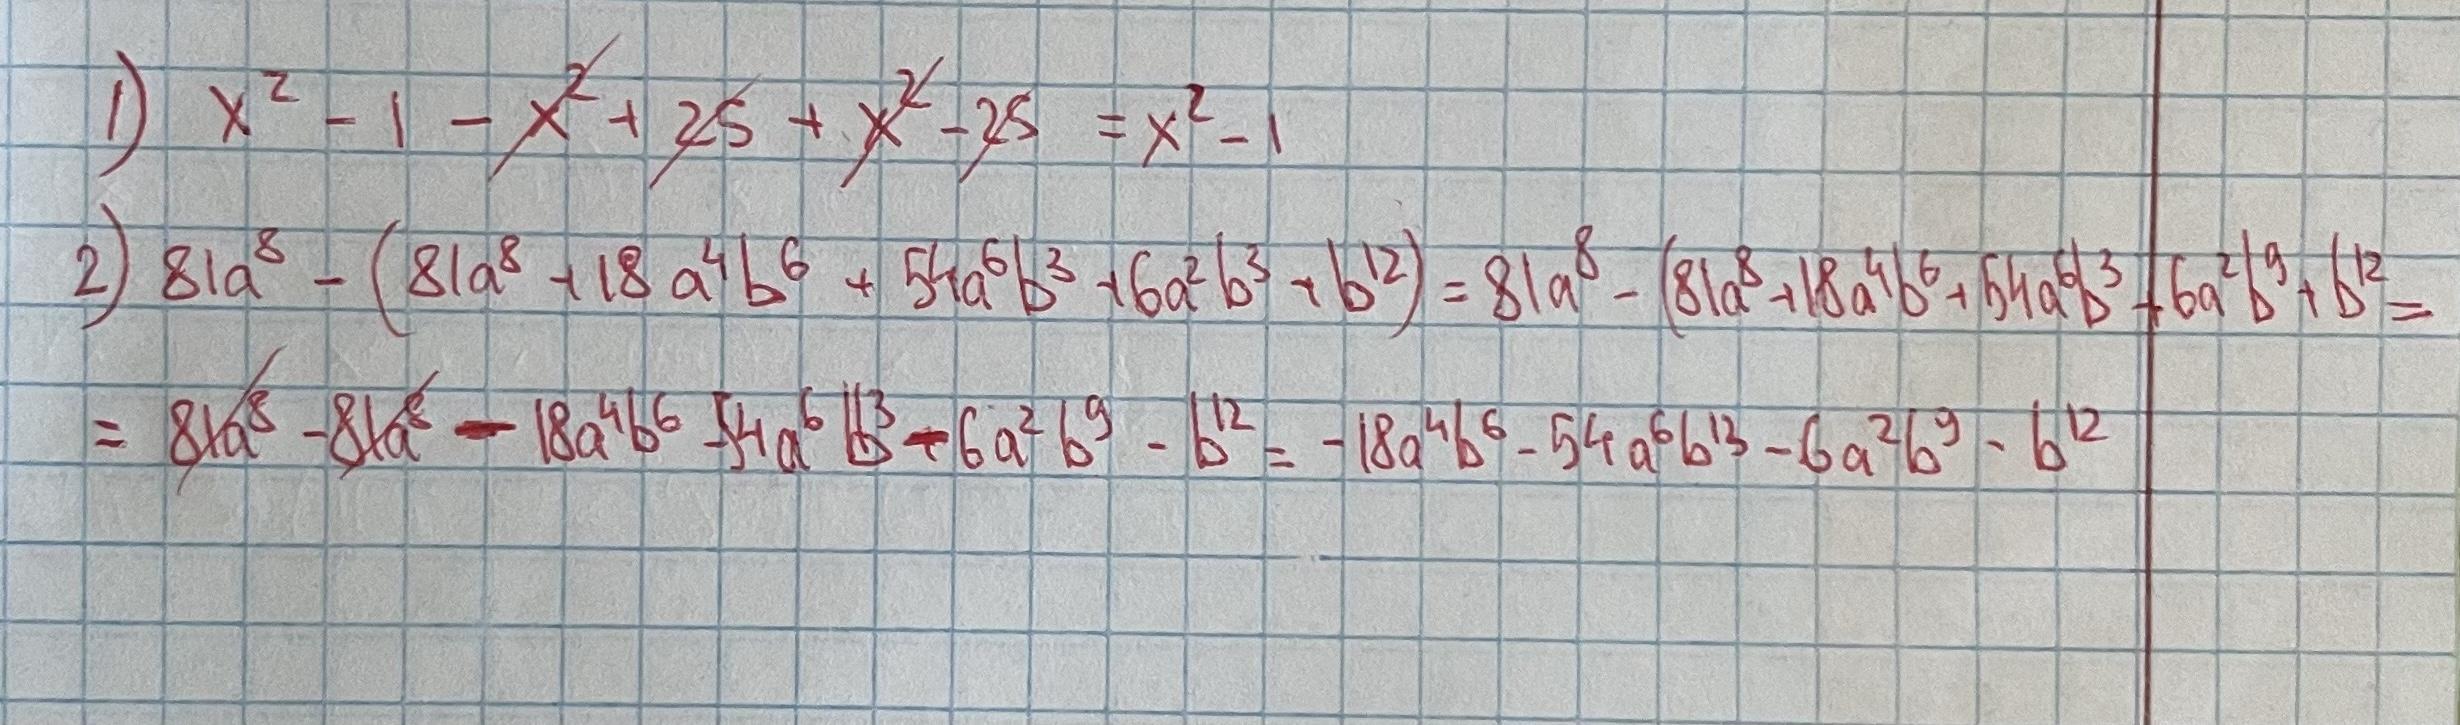 1) x² - 1 - x² + 25 + x² - 25 = x² - 1
2) 81a⁸ - (81a⁸ + 18a⁴b⁶ + 54a⁶b³ + 6a²b³ + b¹²) = 81a⁸ - (81a⁸ + 18a⁴b⁶ + 54a⁶b³ + 6a²b⁹ + b¹² =
= 81a⁸ - 81a⁸ - 18a⁴b⁶ - 54a⁶b³ - 6a²b⁹ - b¹² = -18a⁴b⁶ - 54a⁶b¹³ - 6a²b⁹ - b¹²